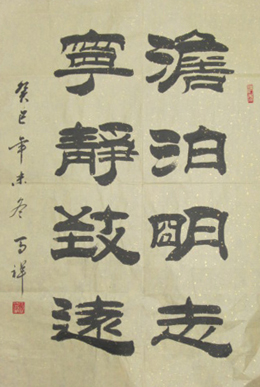 澹泊明志
寧靜致遠
癸巳年末冬